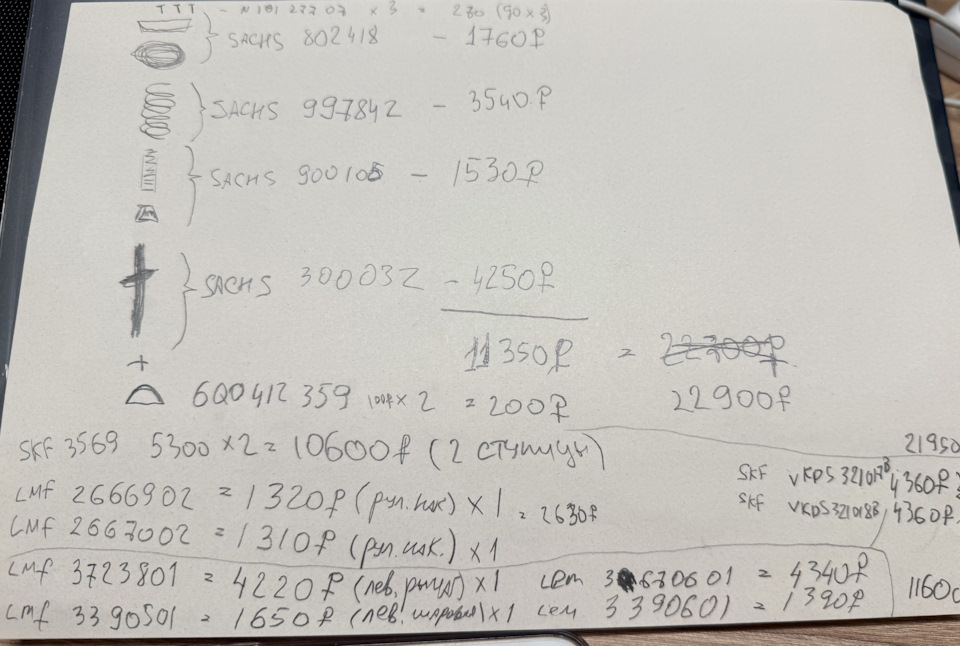 TTT - N 101 277 07 x 3 = 270 (90 x 3)
SACHS 802418 - 1760₽
SACHS 997842 - 3540₽
SACHS 900105 - 1530₽
SACHS 300032 - 4250₽
11350₽ = 22700₽
+
6Q0412359 100₽ x 2 = 200₽ 22900₽
SKF 3569 5300 x 2 = 10600₽ (2 ступицы)
21950
SKF VKDS 321017B 4360₽
SKF VKDS 321018B 4360₽
LMF 2666902 = 1320₽ (рул. нак) x 1 = 2630₽
LMF 2667002 = 1310₽ (рул. нак.) x 1
LMF 3723801 = 4220₽ (лев. рычаг) x 1 LEM 3670601 = 4340₽
LMF 3390501 = 1650₽ (лев. шаровая) x 1 LEM 3390601 = 1390₽
11600